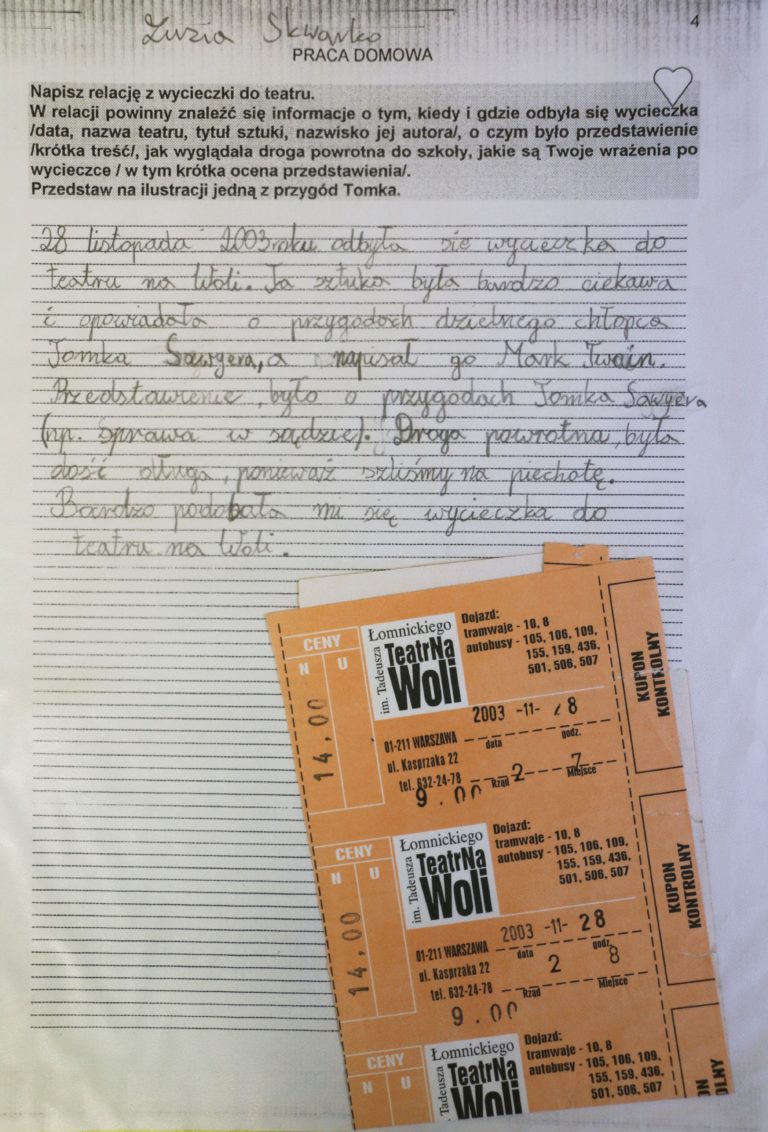 Zuzia Skwarko
4
PRACA DOMOWA
Napisz relację z wycieczki do teatru.
W relacji powinny znaleźć się informacje o tym, kiedy i gdzie odbyła się wycieczka
/data, nazwa teatru, tytuł sztuki, nazwisko jej autora/, o czym było przedstawienie
/krótka treść/, jak wyglądała droga powrotna do szkoły, jakie są Twoje wrażenia po
wycieczce / w tym krótka ocena przedstawienia/.
Przedstaw na ilustracji jedną z przygód Tomka.
28 listopada 2003 roku odbyła sie wycieczka do
teatru na Woli. Ta sztuka była bardzo ciekawa
i opowiadała o przygodach dzielnego chłopca
Tomka Sawyera, a napisał go Mark Twain.
Przedstawienie było o przygodach Tomka Sawyera
(np. sprawa w sądzie). Droga powrotna, była
dość długa, ponieważ szliśmy na piechotę.
Bardzo podobała mi się wycieczka do
teatru na Woli.
CENY
N U
14,00
Łomnickiego
im. Tadeusza
TeatrNa
Woli
Dojazd:
tramwaje - 10, 8
autobusy - 105, 106, 109,
155, 159, 436,
501, 506, 507
KUPON
KONTROLNY
2003 -11- 8
data godz.
01-211 WARSZAWA
ul. Kasprzaka 22
tel. 632-24-78
2 7
Rząd Miejsce
9.00
CENY
N U
14,00
Łomnickiego
im. Tadeusza
TeatrNa
Woli
Dojazd:
tramwaje - 10, 8
autobusy - 105, 106, 109,
155, 159, 436,
501, 506, 507
KUPON
KONTROLNY
2003 -11- 28
data godz.
01-211 WARSZAWA
ul. Kasprzaka 22
tel. 632-24-78
2 8
Rząd Miejsce
9.00
CENY
N U
Łomnickiego
im. Tadeusza
TeatrNa
Woli
Dojazd:
tramwaje - 10, 8
autobusy - 105, 106, 109,
155, 159, 436,
501, 506, 507